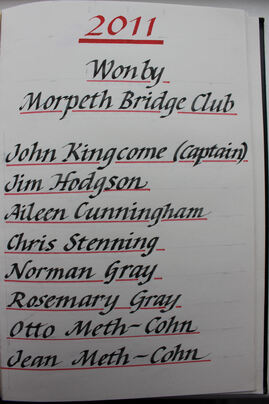 2011
Won by
Morpeth Bridge Club
John Kingcome (Captain)
Jim Hodgson
Aileen Cunningham
Chris Stenning
Norman Gray
Rosemary Gray
Otto Meth-Cohn
Jean Meth-Cohn